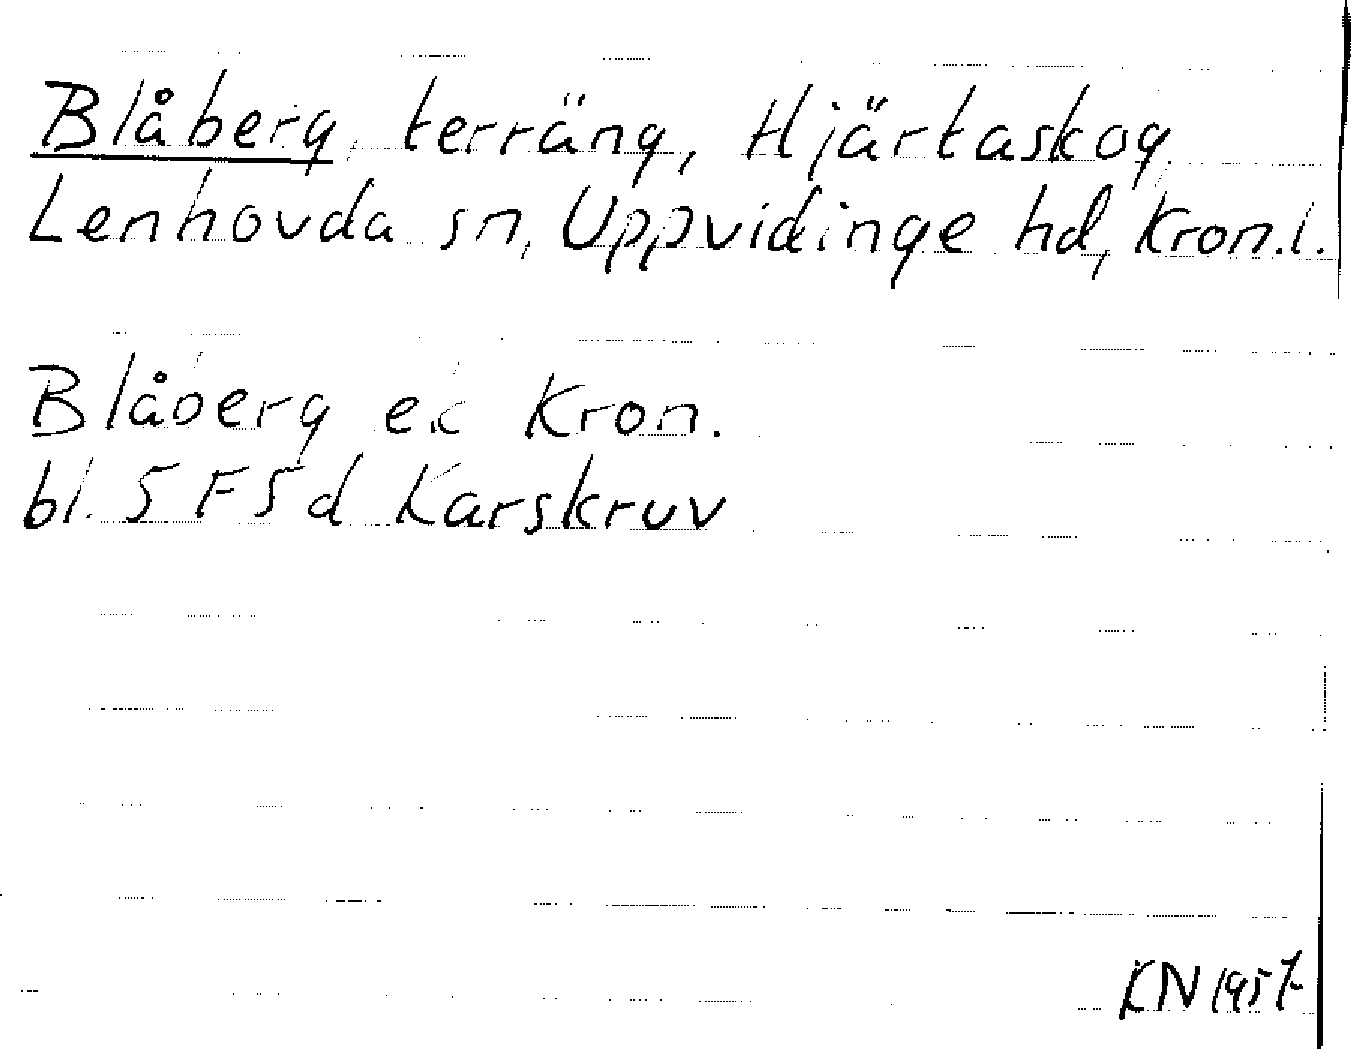 Blåberg, terräng, Hjärtaskog,
Lenhovda sn, Uppvidinge hd, Kron.l.
Blåberg ek Kron.
bl. 5 F 5 d Karskruv
KN 1957